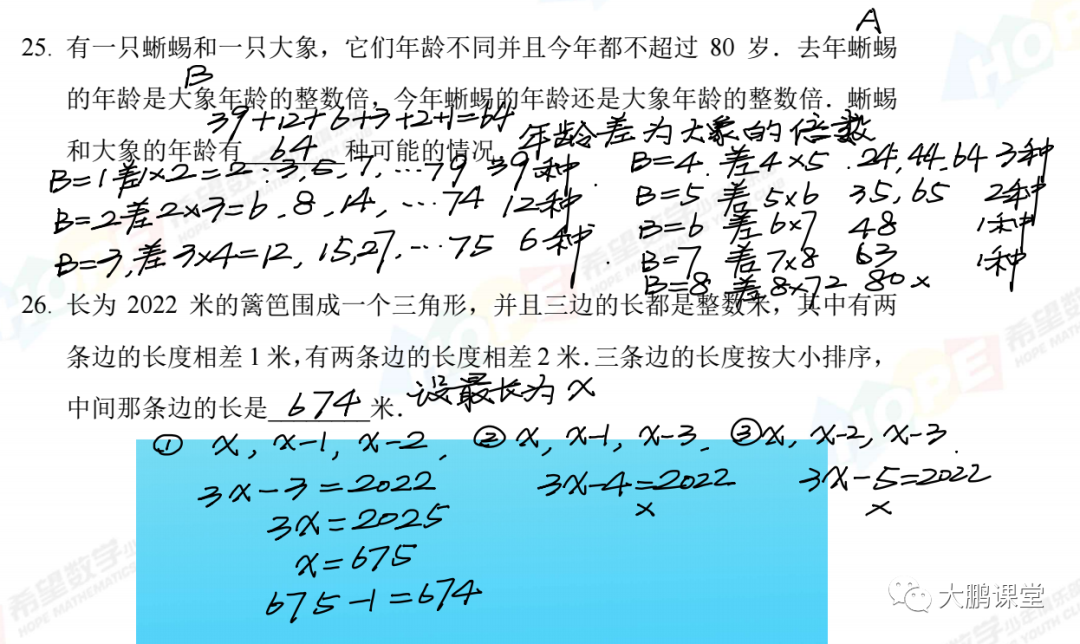 A
25. 有一只蜥蜴和一只大象，它们年龄不同并且今年都不超过 80 岁．去年蜥蜴
B
的年龄是大象年龄的整数倍，今年蜥蜴的年龄还是大象年龄的整数倍．蜥蜴
39+12+6+3+2+1=64
年龄差为大象的倍数
和大象的年龄有 64 种可能的情况．
B=1差1×2=2：3,5,7,…79 39种
B=2差2×3=6．8,14,…74 12种
B=3,差3×4=12, 15,27,…75 6种
B=4．差4×5 24,44,64 3种
B=5 差5×6 35,65 2种
B=6 差6×7 48 1种
B=7 差7×8 63 1种
B=8 差8×72 80 ×
26. 长为 2022 米的篱笆围成一个三角形，并且三边的长都是整数米，其中有两
条边的长度相差 1 米，有两条边的长度相差 2 米．三条边的长度按大小排序，
中间那条边的长是 674 米．设最长为x
① x, x-1, x-2． ② x, x-1, x-3． ③x, x-2, x-3．
3x-3=2022 3x-4=2022 3x-5=2022
3x=2025 × ×
x=675
675-1=674
大鹏课堂
希望数学
HOPE MATHEMATICS
HOPE